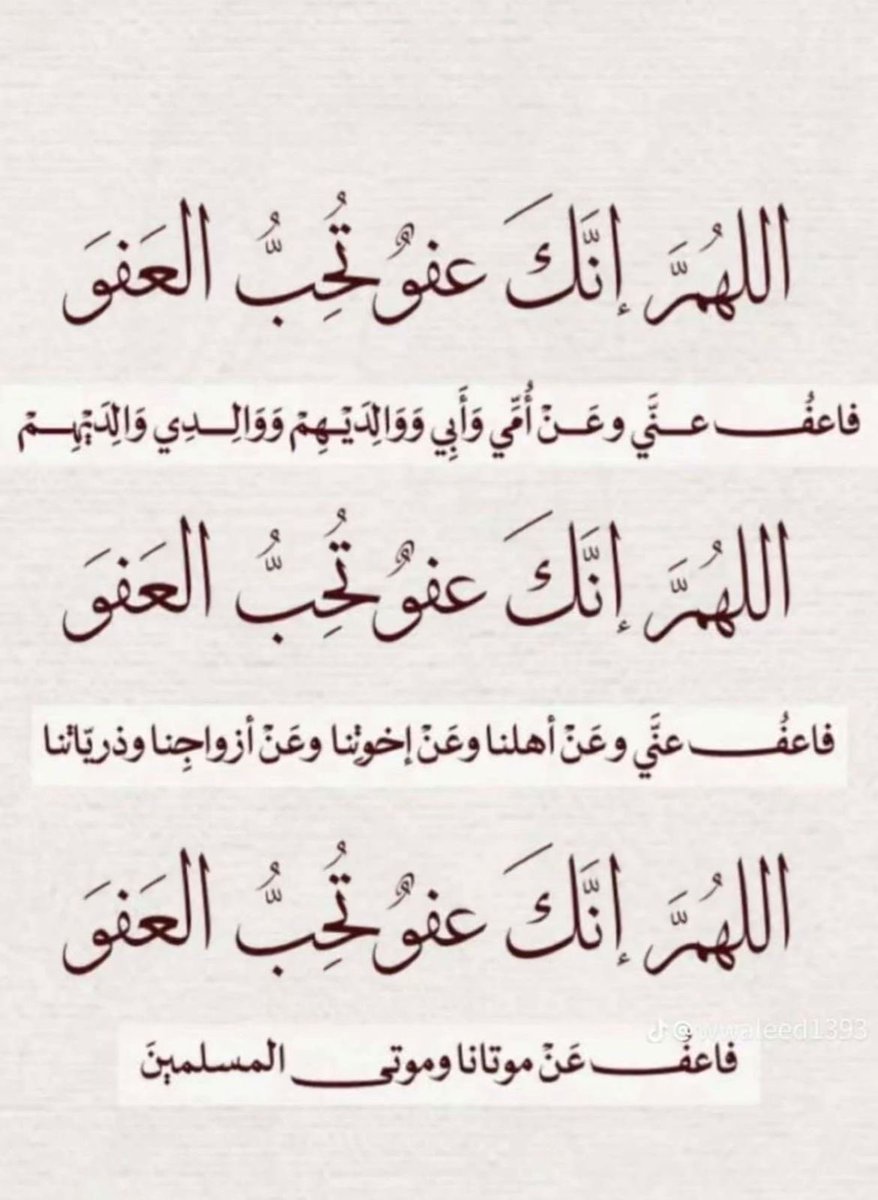 اللهمَّ إنَّكَ عفوٌ تُحِبُّ العَفوَ
فاعفُ عنَّي وعَنْ أُمَّي وَأَبِي وَوَالِدَيْهِمْ وَوَالِدِي وَالِدَيْهِمْ
اللهُمَّ إنَّكَ عفوٌ تُحِبُّ العَفوَ
فاعفُ عنَّي وعَنْ أهلنا وعَنْ إخوتِنا وعَنْ أزواجِنا وذريّاتنا
اللهُمَّ إنَّكَ عفوٌ تُحِبُّ العَفوَ
@wwaleed1393
فاعفُ عَنْ موتانا وموتى المسلمينَ